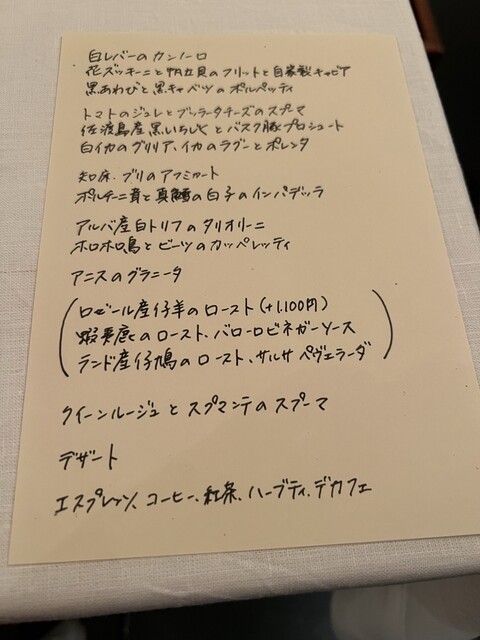 白レバーのカンノーロ
花ズッキーニと帆立貝のフリットと自家製キャビア
黒あわびと黒キャベツのポルペッティ
トマトのジュレとブッラータチーズのスプーマ
佐渡島産黒いちじくとバスク豚プロシュート
白イカのグリリア、イカのラグーとポレンタ
知床、ブリのアフミカート
ポルチーニ茸と真鱈の白子のインパデッラ
アルバ産白トリフのタリオリーニ
ホロホロ鳥とビーツのカッペレッティ
アニスのグラニータ
ロゼール産仔羊のロースト(+1,100円)
蝦夷鹿のロースト、バローロビネガーソース
ランド産仔鳩のロースト、サルサ ペヴェラーダ
クイーンルージュとスプマンテのスプーマ
デザート
エスプレッソ、コーヒー、紅茶、ハーブティ、デカフェ